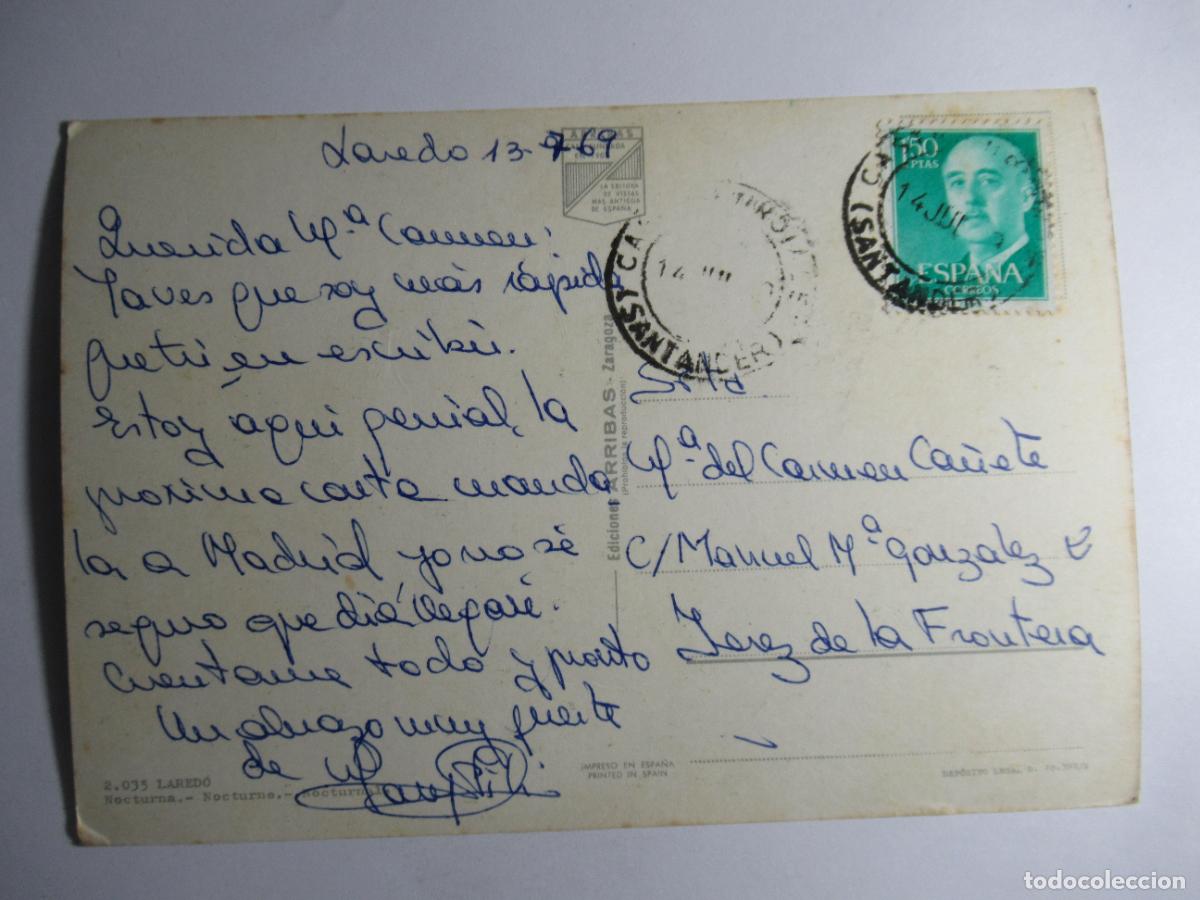 Laredo 13-7-69
Querida Mª Carmen:
Ya ves que soy más rápida
que tú en escribir.
Estoy aquí genial, la
proxima carta manda
la a Madrid, yo no sé
seguro que diá llegaré.
Cuentame todo y pronto
Un abrazo muy fuerte
de
ARRIBAS
LA EDITORA
DE VISTAS
MAS ANTIGUA
DE ESPAÑA
Ediciones ARRIBAS - Zaragoza
(Prohibida la reproducción)
(SANTANDER)
14 JUL
1,50
PTAS
ESPAÑA
CORREOS
14 JUL
(SANTANDER)
Srta.
Mª del Carmen Cañete
C/ Manuel Mª Gonzalez
Jerez de la Frontera
2.035 LAREDO
Nocturna.- Nocturne.-
IMPRESO EN ESPAÑA
PRINTED IN SPAIN
DEPÓSITO LEGAL
todocoleccion